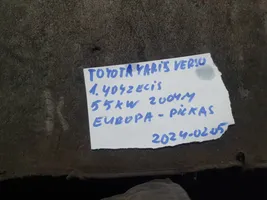 TOYOTA YARIS VERSO
1.4D4ZECIS
55KW 2004M
EUROPA - PILKAS
2024-02-05